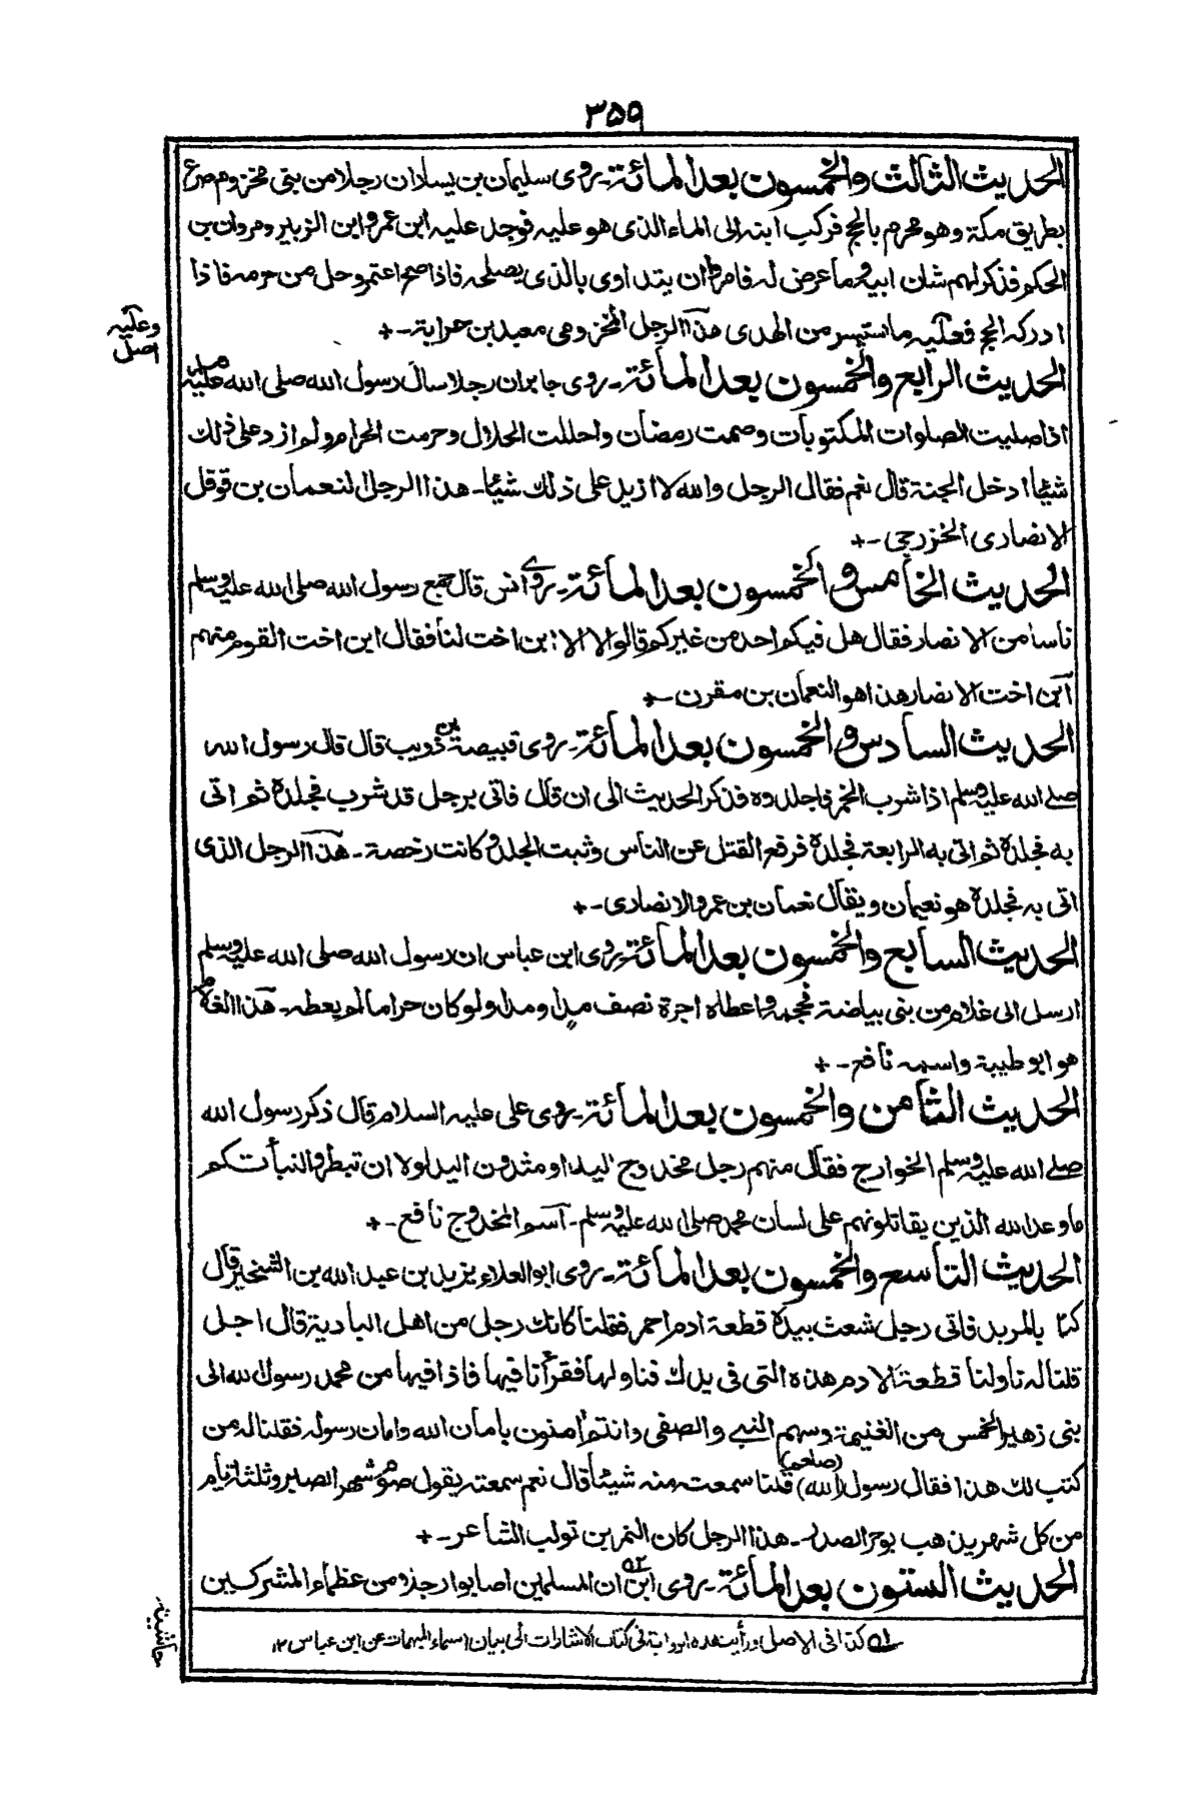 ٣٥٩
الحديث الثالث والخمسون بعد المائة ۔ روى سليمان بن يسار ان رجلا من بنى مخزوم صرع
بطريق مكة وهو محرم بالحج فركب ابنه الى الماء الذى هو عليه فوجد عليه ابن عمرو ابن الزبير ومروان بن
الحكم فذكر لهم شان ابيه وما عرض له فامرهٗ ان يتداوى بالذى يصلحه فاذا صح اعتمر وحل من حرمه فاذا
ادركه الحج فعليه ما ستيسر من الهدى هذا الرجل المخزومى معبد بن حرابة ۔ +
وعليه
اصل
الحديث الرابع والخمسون بعد المائة ۔ روى جابر ان رجلا سأل رسول الله صلى الله عليه وسلم
اذا صليت الصلوات المكتوبات وصمت رمضان واحللت الحلال وحرمت الحرام ولم ازد على ذلك
شيئا ادخل الجنة قال نعم فقال الرجل والله لا ازيد على ذلك شيئا ۔ هذا الرجل النعمان بن قوقل
الانصارى الخزرجى ۔ +
الحديث الخامس والخمسون بعد المائة ۔ روى انس قال جمع رسول الله صلى الله عليه وسلم
ناسا من الانصار فقال هل فيكم احد من غيركم قالوا لا الا ابن اخت لنا فقال ابن اخت القوم منهم
ابن اخت الانصار هذا هو النعمان بن مقرن ۔ +
الحديث السادس والخمسون بعد المائة ۔ روى قبيصة بن ذويب قال قال رسول الله
صلے الله عليه وسلم اذا شرب الخمر فاجلدوه فذكر الحديث الى ان قال فاتى برجل قد شرب فجلده ثم اتى
به فجلده ثم اتى به الرابعة فجلده فرفع القتل عن الناس وثبت الجلد وكانت رخصة ۔ هذا الرجل الذى
اتى به فجلده هو نعيمان ويقال نعمان بن عمرو الانصارى ۔ +
الحديث السابع والخمسون بعد المائة ۔ روى ابن عباس ان رسول الله صلى الله عليه وسلم
ارسل الى غلام من بنى بياضة فحجمه واعطاه اجرة نصف مد او مد ولو كان حراما لم يعطه ۔ هذا الغلام
هو ابو طيبة واسمه نافع ۔ +
الحديث الثامن والخمسون بعد المائة ۔ روى على عليه السلام قال ذكر رسول الله
صلے الله عليه وسلم الخوارج فقال منهم رجل مخدوج اليد او مثدون اليد لولا ان تبطروا لنبأتكم
ما وعد الله الذين يقاتلونهم على لسان محمد صلى الله عليه وسلم ۔ اسم المخدوج نافع ۔ +
الحديث التاسع والخمسون بعد المائة ۔ روى ابو العلاء يزيد بن عبد الله بن الشخير قال
كنا بالمربد فاتى رجل شعث بيده قطعة ادم احمر فقلنا كانك رجل من اهل البادية قال اجل
قلنا له ناولنا قطعة الادم هذه التى فى يدك فناولها فقرأنا فيها فاذا فيها من محمد رسول الله الى
بنى زهير الخمس من الغنيمة وسهم النبے والصفى وانتم امنون بامان الله وامان رسوله فقلنا له من
كتب لك هذا فقال رسول (الله) (صلعم) قلنا سمعت منه شيئا قال نعم سمعته يقول صوم شهر الصبر وثلثة ايام
من كل شهر يذهب بوحر الصدر ۔ هذا الرجل كان النمر بن تولب الشاعر ۔ +
الحديث الستون بعد المائة ۔ روى ابن ان المسلمين اصابوا رجلا من عظماء المشركين
حاشيته
كذا فى الاصل ورأيت هذه الرواية فى كتاب الاشارات الى بيان اسماء المبهمات عن ابن عباس ١٢